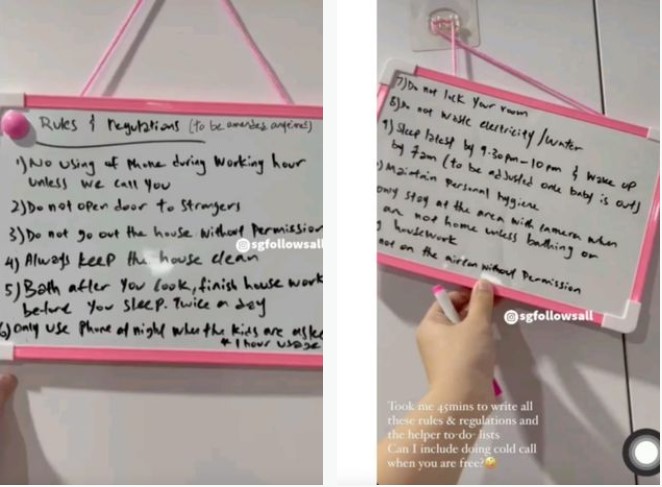 Rules & regulations (to be amended anytime)
1) No using of Phone during working hour
unless we call you
2) Do not open door to strangers
3) Do not go out the house without Permission
4) Always keep the house clean
5) Bath after you cook, finish house work
before you sleep. Twice a day
6) Only use Phone at night when the kids are aslee
* 1 hour usage
@sgfollowsall
7) Do not lock your room
8) Do not waste electricity / water
9) Sleep latest by 9.30pm - 10pm & wake up
by 7am (to be adjusted once baby is out)
) Maintain Personal hygiene
only stay at the area with camera when
are not home unless bathing or
g housework
not on the aircon without Permission
@sgfollowsall
Took me 45mins to write all
these rules & regulations and
the helper to-do- lists
Can I include doing cold call
when you are free?🤣